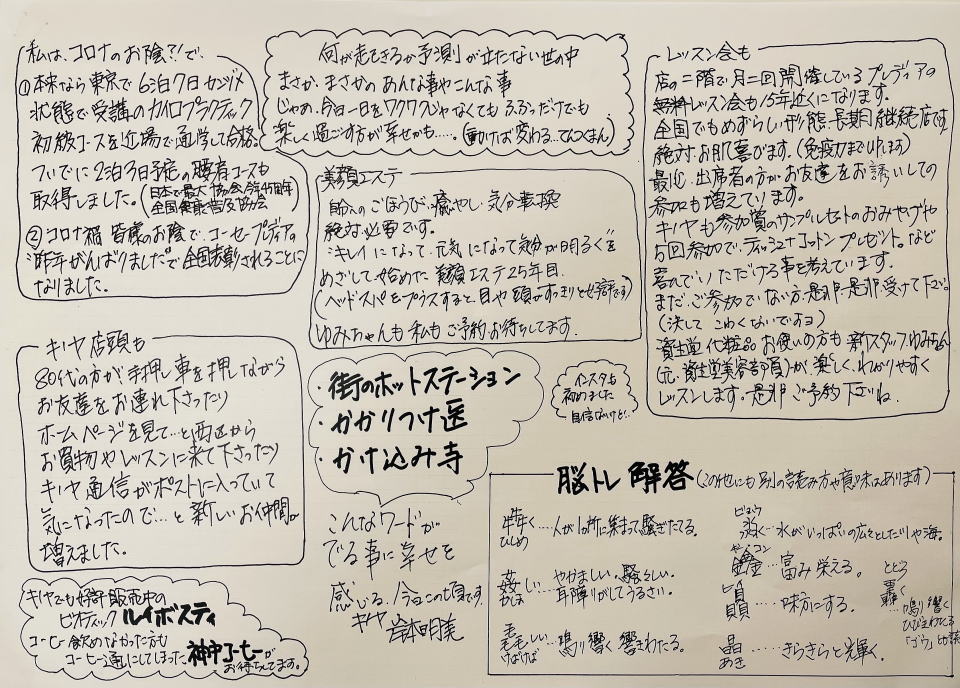 私は、コロナのお陰?!で、
①本来なら東京で6泊7日カンヅメ
状態で受講のカイロプラクティック
初級コースを近場で通学して合格。
ついでに2泊3日予定の腰肩コースも
取得しました。(日本で最大 協会、今年45周年
全国健康普及協会)
②コロナ禍 皆様のお陰で、コーセープレディアの
"昨年がんばりました"で全国表彰されることに
なりました。
何が起きるか予測が立たない世の中
まさか、まさかのあんな事やこんな事
じゃあ、今日一日をワクワクじゃなくても ふふっだけでも
楽しく過ごす方が幸せかも……。(動けば変わる…てんつくまん)
美顔エステ
自分へのごほうび、癒やし、気分転換
絶対必要です。
"キレイになって、元気になって気分が明るく"を
めざして、始めた美顔エステ25年目。
(ヘッドスパをプラスすると、目や頭がすっきりと好評です)
ゆみちゃんも私もご予約お待ちしてます。
レッスン会も
店の二階で月二回開催しているプレディアの
無料レッスン会も15年近くになります。
全国でもめずらしい形態、長期継続店です。
絶対お肌喜びます。(免疫力まで上げます)
最近、出席者の方がお友達をお誘いしての
参加も増えています。
キヤも参加賞のサンプルセットのおみやげや
5回参加で、ティッシュコットンプレゼント。など
喜んでいただける事を考えています。
まだ、ご参加でない方、是非是非受けて下さい。
(決してこわくないですヨ)
資生堂化粧品お使いの方も新スタッフゆみちゃん
(元、資生堂美容部員)が、楽しく、わかりやすく
レッスンします。是非ご予約下さいね。
キヤ店頭も
80代の方が手押し車を押しながら
お友達をお連れ下さったり
ホームページを見て…と西区から
お買物やレッスンに来て下さったり
キヤ通信がポストに入っていて
気になったので…と新しいお仲間が
増えました。
・街のホットステーション
・かかりつけ医
・かけ込み寺
こんなワードが
でる事に幸せを
感じる、今日この頃です。
キヤ 岸本明美
インスタも
初めました
自信ないけど…
キヤでも好評販売中の
ビオティック ルイボスティ
コーヒー飲めなかった方も
コーヒー通にしてしまった 神戸コーヒーが
お待ちしてます。
脳トレ 解答(この他にも別の読み方や意味はあります)
犇く…人が1か所に集まって騒ぎたてる。
ひしめ
姦しい…やかましい。騒々しい。
かしま
耳障りがしてうるさい。
毳毳しい…鳴り響く 響きわたる。
けばけば
ビョウ
淼…水がいっぱいの広々とした川や海。
キン コン
鑫…富み栄える。
贔屓…味方にする。
晶…きらきらと輝く。
あき
とどろ
轟く…鳴り響く
ひびきわたる